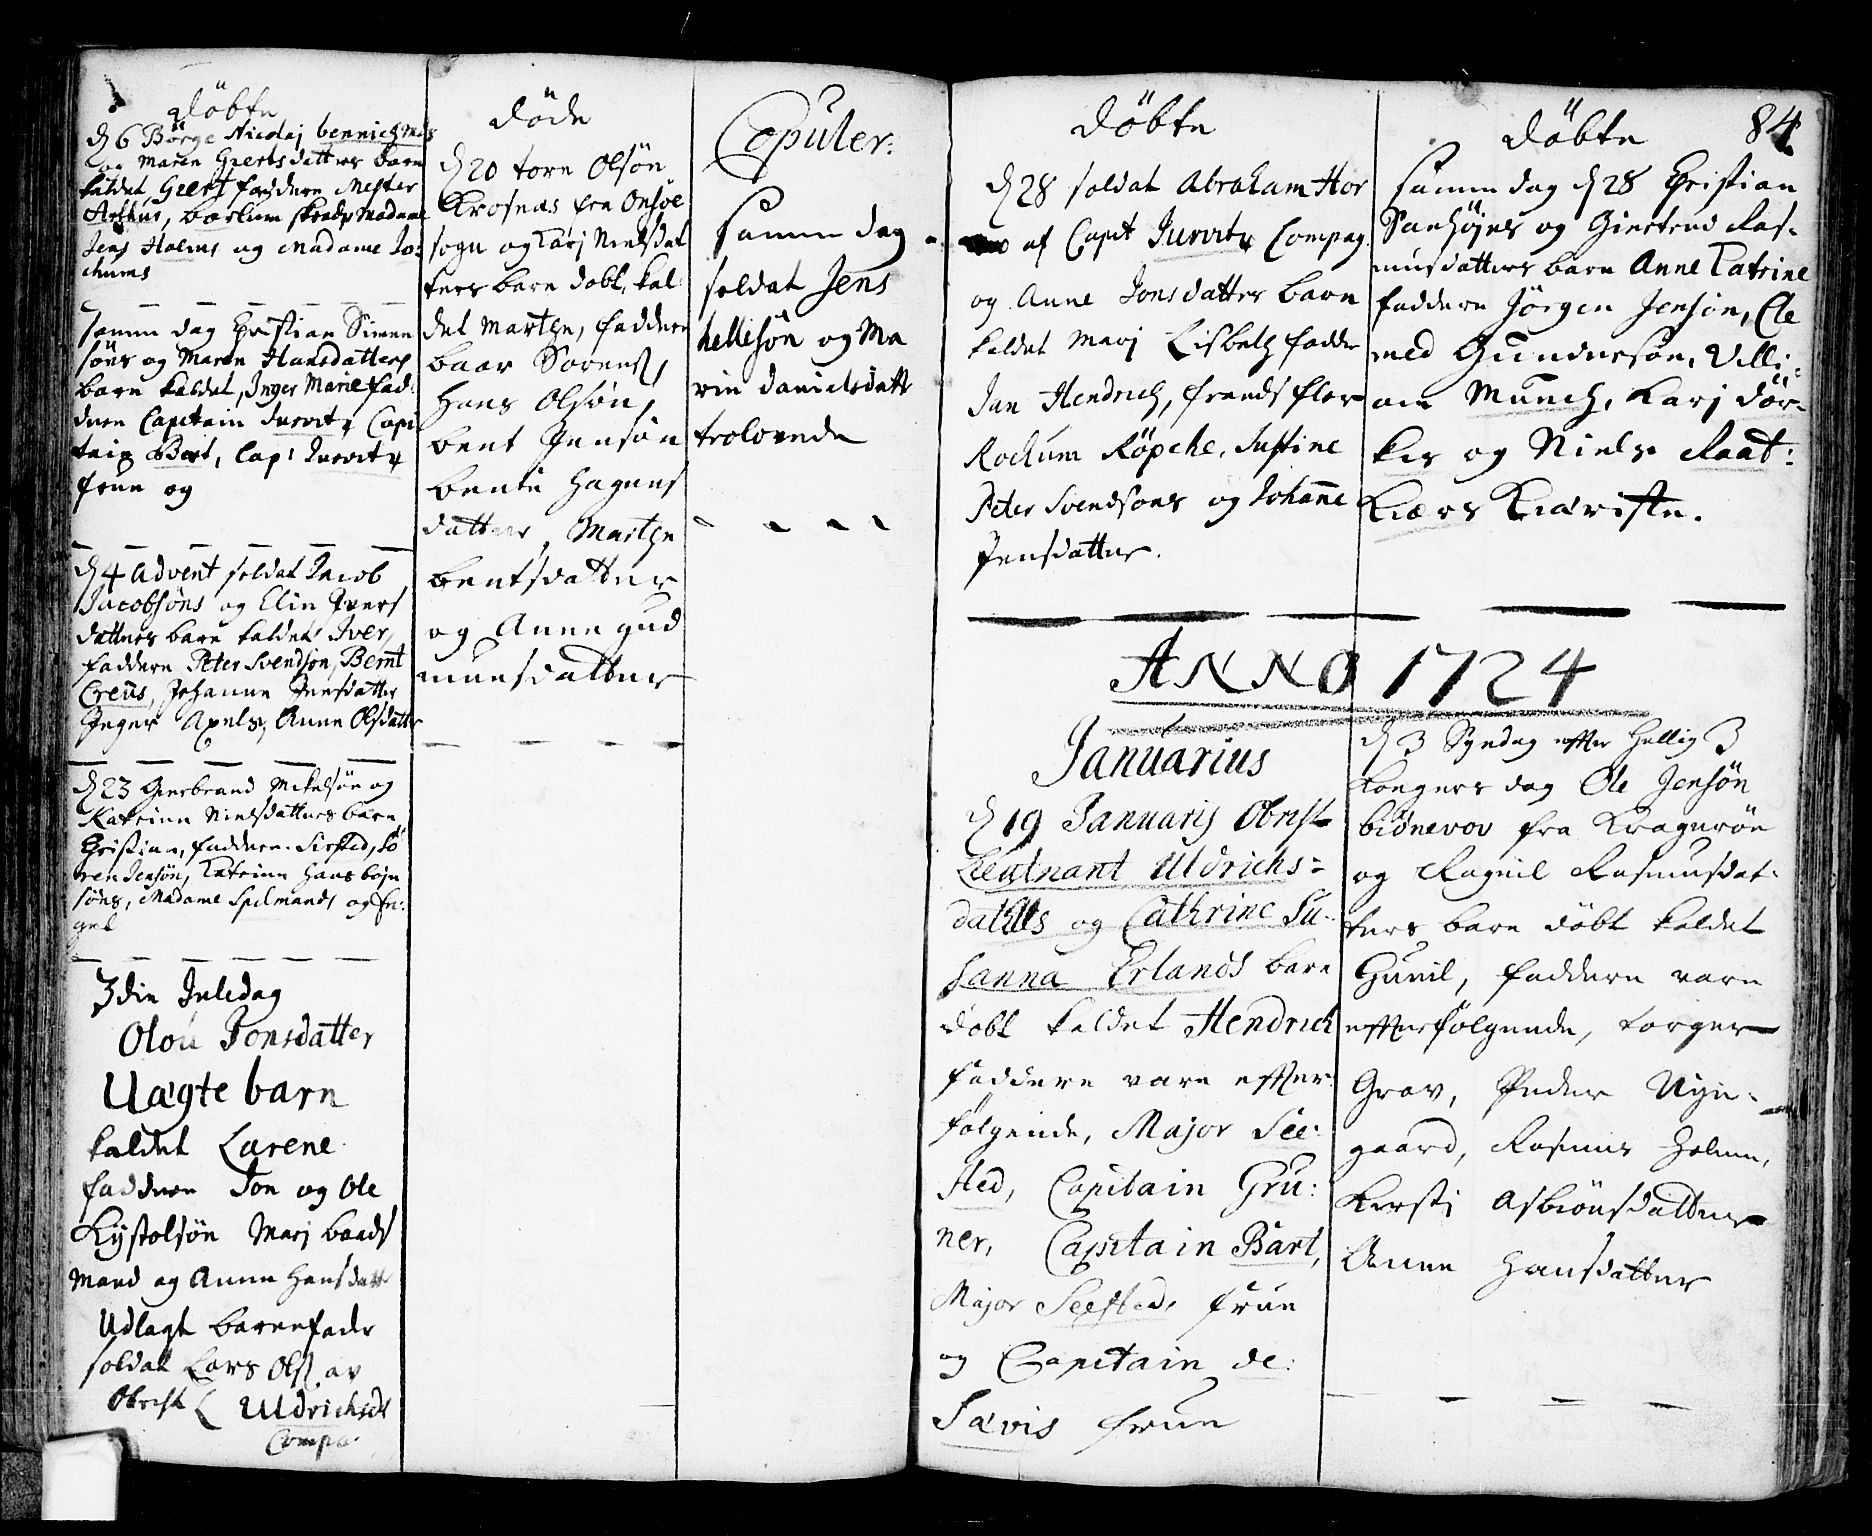 döbte
d 6 Börge Nicolaj bennich
og Maren Geertsdatters barn
kaldet, Geert faddere Mester
Arthur, bærlum Madame
Jens Holms og Madame Jo:
chums
samme dag Christian Simen
söns og Maren Hansdatters
barn kaldet, Inger Marie fad:
dere Capitain Jurvitz Capi
tain Bart, Cap: Jurvitz
frue og
d 4 Advent soldat Jacob
Jacobsöns og Elin Ivers
datters barn kaldet Iver,
faddere Peter Svendson, Bernt
Creüs, Johanne Jensdatter
Inger Axels, Anne Olsdatter
d 23 Gierbrand Mikelsön og
Katrine Nielsdatters barn
Christian, faddere Sirsted, Sö
ren Jensön, Katrine Hans
söns, Madame Spilmands og
gel
3die Juledag
Olou Jonsdatter
Uægte barn
kaldet Larene
faddere Jon og Ole
Kystolsön Marj baads
mand og Anne Hansdatter
Udlagt barnefader
soldat Lars Ols. av
Obrist L Uldrichsdls
Comp.
döde
d 20 tore Olsön
Krosnæs fra Onsöe
sogn og Karj Nielsdat
ters barn dobt, kal
det Marthe, faddere
baar Sorens,
Hans Olsön,
bent Jensön
bente Hagens
datter, Marthe
bentsdatter
og Anne gud
munsdatter
Copuler:
samme dag
soldat Jens
hellisön og Ma
rin danielsdatt
trolovede
döbte
d 28 soldat Abraham Hor
af Capt Jurvitz Compag.
og Anne Jonsdatters barn
kaldet Marj Lisbeth fadder
Jan Hendrich, frands flor
Rockum Röpcke, Justine
Peter Svendsons og Johanne
Jensdatter.
döbte 84
samme dag d 28 Christian
Sanhöjes og Giertrud Ras-
musdatters barn Anne Catrine
faddere Jörgen Jenson, Cle
med Gundersön, Villi-
am Munch, Karj dör-
kes og Niels Raat:
Kiærs Kiæriste.
ANNO 1724
Januarius
d 19 Januarij Obrist
Lieutnant Uldrichs=
dahls og Cathrine Su-
sanna Erlands barn
dobt kaldet Hendrich
faddere vare efter:
folgende, Major See:
sted, Capitain Gru:
ner, Capitain Bart,
Major Seested, frue
og Capitain de:
Sævis frue
d 3 Syndag efter Hellig 3
Kongers dag Ole Jensön
bidnevov fra Krageröe
og Ragnil Rasmusdat-
ters barn döbt kaldet
Gunil, faddere vare
efterfolgende, torger
Grav, Peder Nye-
gaard, Rasmus Holm,
Kersti Asbiönsdatter
Anne Hansdatter